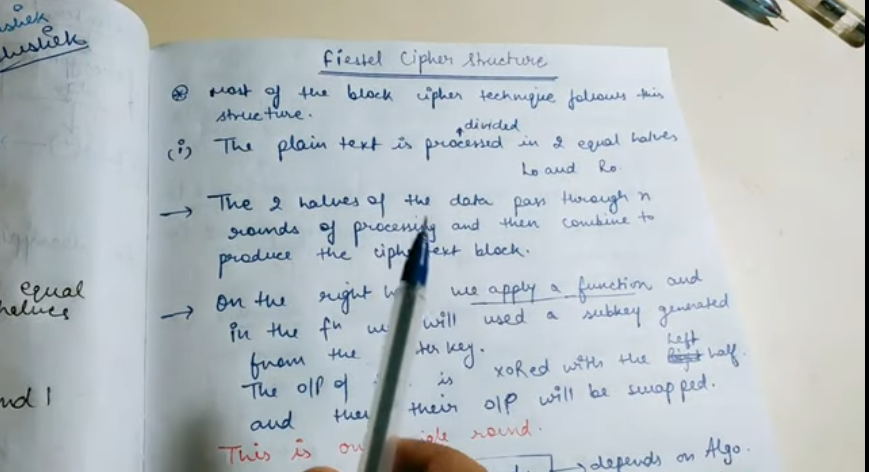 Fiestel Cipher Structure
⊛ Most of the block cipher technique follows this
structure.
divided
(i) The plain text is processed in 2 equal halves
L0 and R0.
→ The 2 halves of the data pass through n
rounds of processing and then combine to
produce the ciphertext block.
→ On the right we apply a function and
in the fn will used a subkey generated
from the key.
Left
The O/P of is XORed with the half.
and their O/P will be swapped.
This is round.
→ depends on Algo.
equal
halves
nd 1